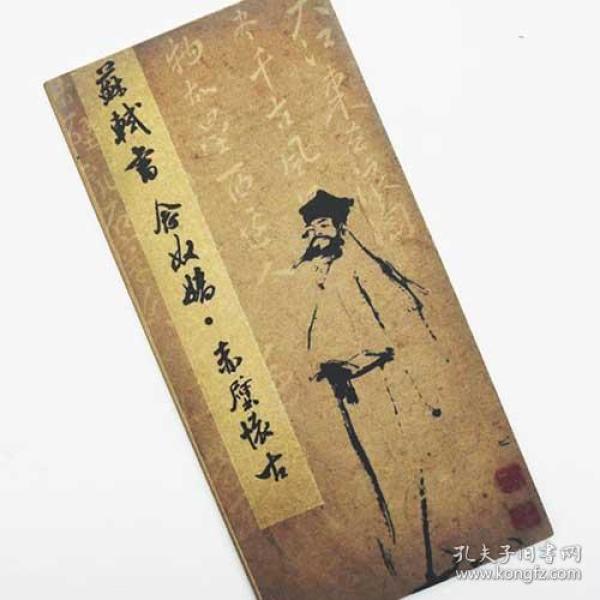 蘇軾書 念奴嬌·赤壁懷古
大江東去浪淘
尽千古風
物故壘西邊人
孔夫子旧书网
www.kongfz.com